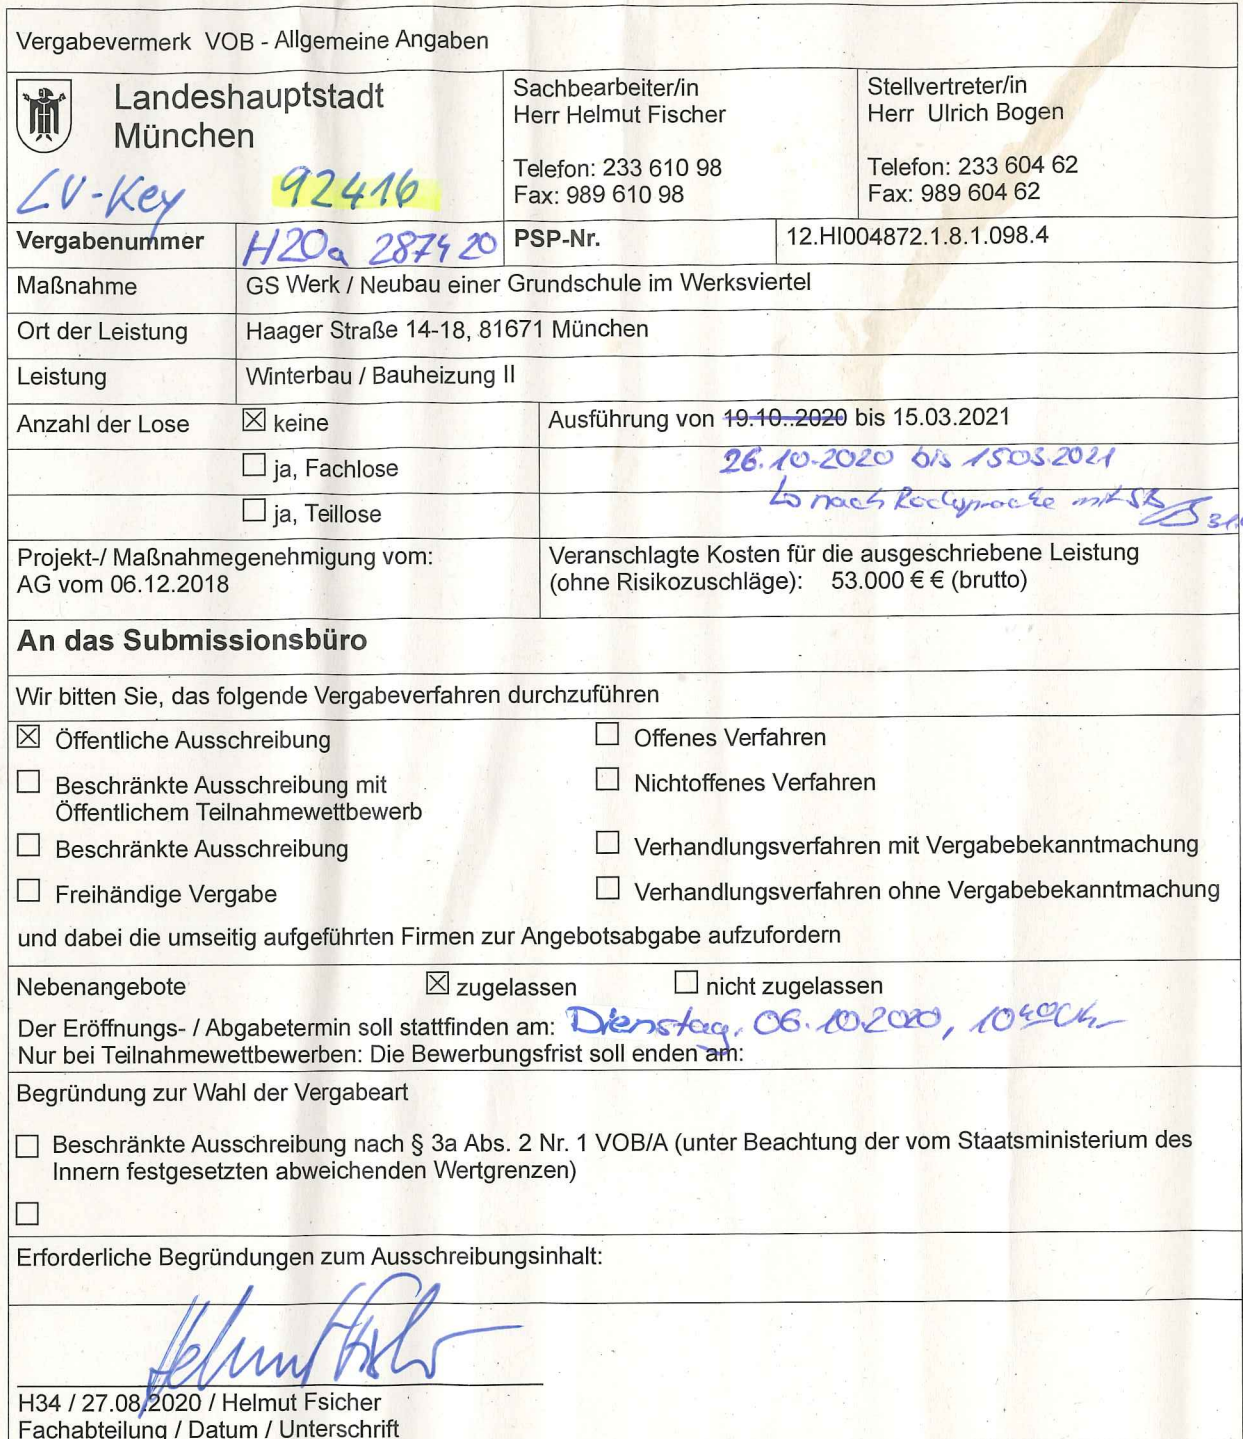 Vergabevermerk VOB - Allgemeine Angaben
Landeshauptstadt
München
LV-Key 92416
Sachbearbeiter/in
Herr Helmut Fischer
Telefon: 233 610 98
Fax: 989 610 98
Stellvertreter/in
Herr Ulrich Bogen
Telefon: 233 604 62
Fax: 989 604 62
Vergabenummer H20a 287420 PSP-Nr. 12.HI004872.1.8.1.098.4
Maßnahme GS Werk / Neubau einer Grundschule im Werksviertel
Ort der Leistung Haager Straße 14-18, 81671 München
Leistung Winterbau / Bauheizung II
Anzahl der Lose ☒ keine Ausführung von 19.10..2020 bis 15.03.2021
☐ ja, Fachlose 26.10.2020 bis 15.03.2021
☐ ja, Teillose nach Rücksprache mit SB
Projekt-/ Maßnahmegenehmigung vom:
AG vom 06.12.2018
Veranschlagte Kosten für die ausgeschriebene Leistung
(ohne Risikozuschläge): 53.000 € € (brutto)
An das Submissionsbüro
Wir bitten Sie, das folgende Vergabeverfahren durchzuführen
☒ Öffentliche Ausschreibung ☐ Offenes Verfahren
☐ Beschränkte Ausschreibung mit ☐ Nichtoffenes Verfahren
Öffentlichem Teilnahmewettbewerb
☐ Beschränkte Ausschreibung ☐ Verhandlungsverfahren mit Vergabebekanntmachung
☐ Freihändige Vergabe ☐ Verhandlungsverfahren ohne Vergabebekanntmachung
und dabei die umseitig aufgeführten Firmen zur Angebotsabgabe aufzufordern
Nebenangebote ☒ zugelassen ☐ nicht zugelassen
Der Eröffnungs- / Abgabetermin soll stattfinden am: Dienstag, 06.10.2020,
Nur bei Teilnahmewettbewerben: Die Bewerbungsfrist soll enden am:
Begründung zur Wahl der Vergabeart
☐ Beschränkte Ausschreibung nach § 3a Abs. 2 Nr. 1 VOB/A (unter Beachtung der vom Staatsministerium des
Innern festgesetzten abweichenden Wertgrenzen)
☐
Erforderliche Begründungen zum Ausschreibungsinhalt:
H34 / 27.08.2020 / Helmut Fsicher
Fachabteilung / Datum / Unterschrift